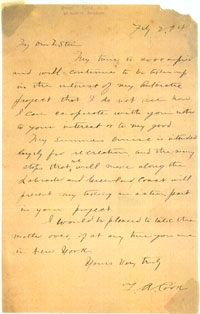 My dear Sir
My time is so occupied
and will continue to be taken up
in the interest of my Antarctic
project that I do not see how
I can co-operate with you either
to your interest or to my good.
My summer cruise is intended
largely for recreation and the many
stops that we will make along the
Labrador and Greenland Coast will
prevent my taking an active part
in your project.
I would be pleased to talk this
matter over if at any time you are
in New York.
Yours Very truly
F. A. Cook